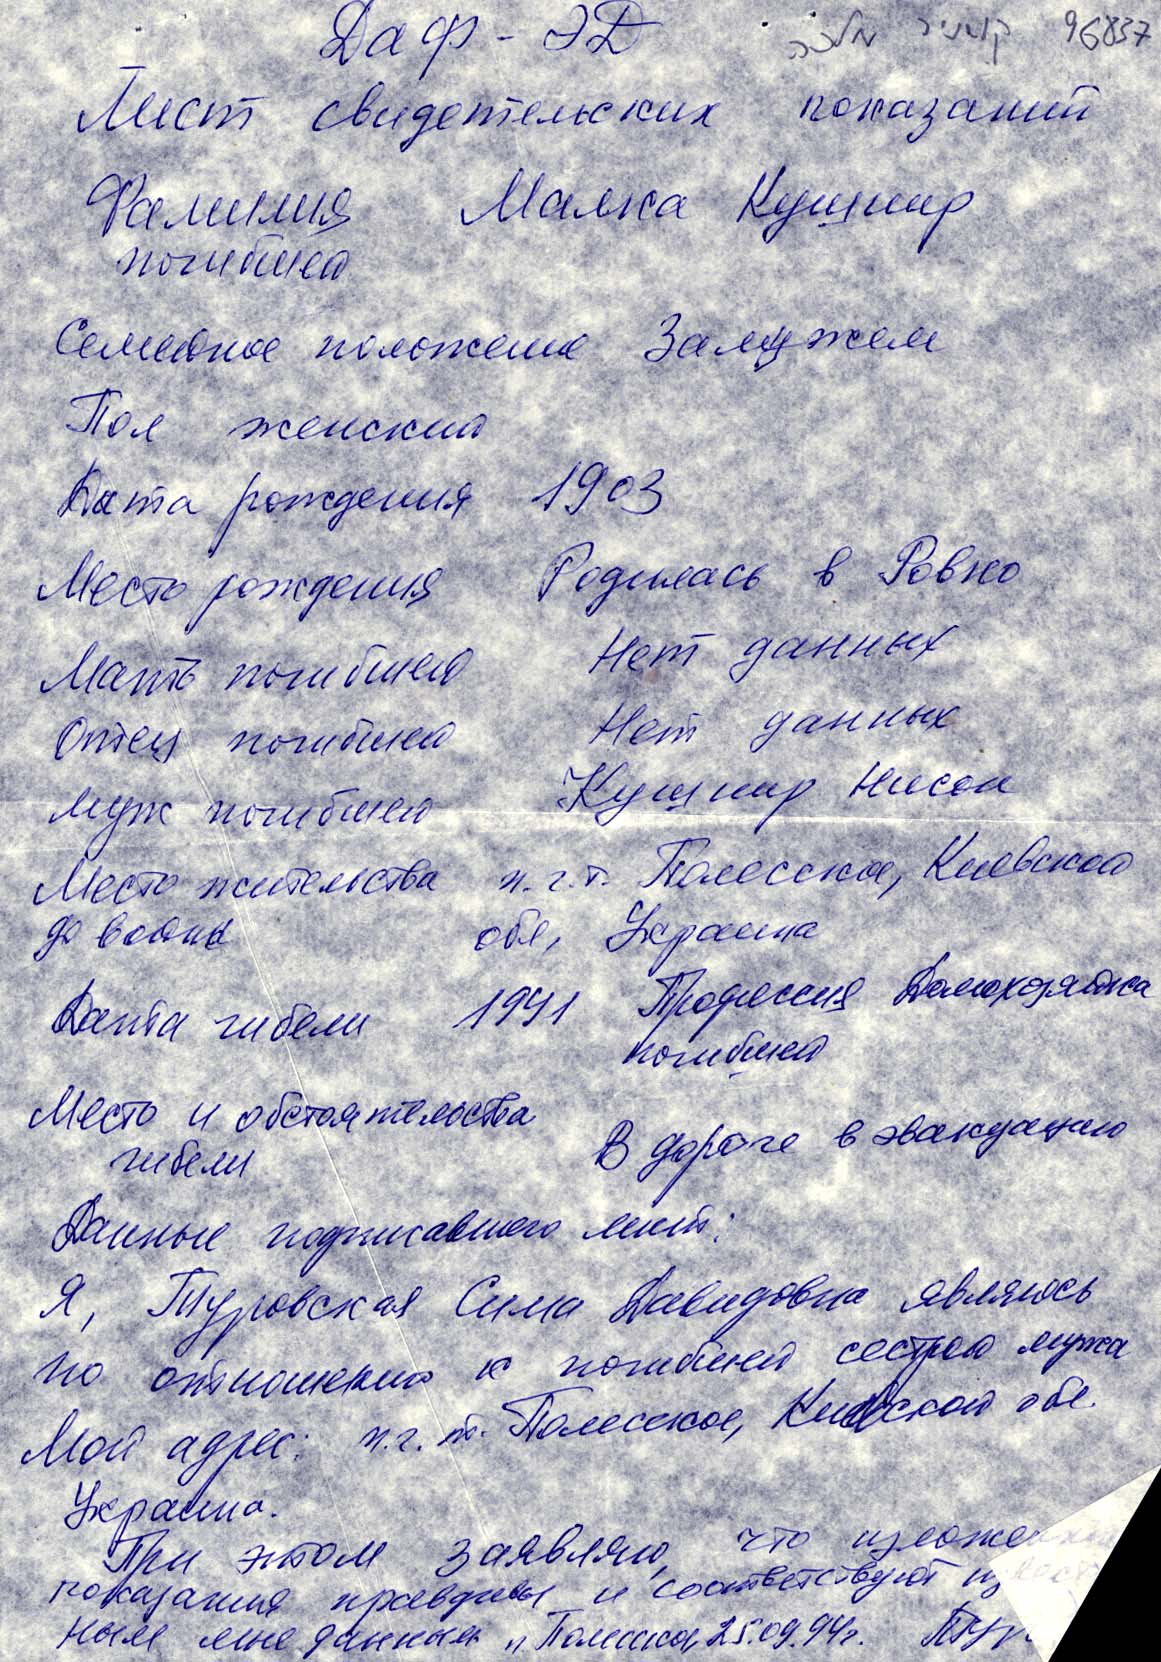 Даф - ЭД
קושניר מלכה 96837
Лист свидетельских показаний
Фамилия Малка Кушнир
погибшей
Семейное положение Замужем
Пол женский
Дата рождения 1903
Место рождения Родилась в Ровно
Мать погибшей Нет данных
Отец погибшей Нет данных
Муж погибшей Кушнир Нисон
Место жительства п.г.т. Полесское, Киевской
до войны обл, Украина
Дата гибели 1941 Профессия Домохозяйка
погибшей
Место и обстоятельства
гибели В дороге в эвакуацию
Данные подписавшего лист:
Я, Туровская Сима Давидовна являюсь
по отношению к погибшей сестрой мужа
Мой адрес: п.г.т. Полесское, Киевской обл.
Украина.
При этом заявляю, что изложен
показания правдивы и соответствуют из
ным мне данным Полесское, 25.09.94г. Тур